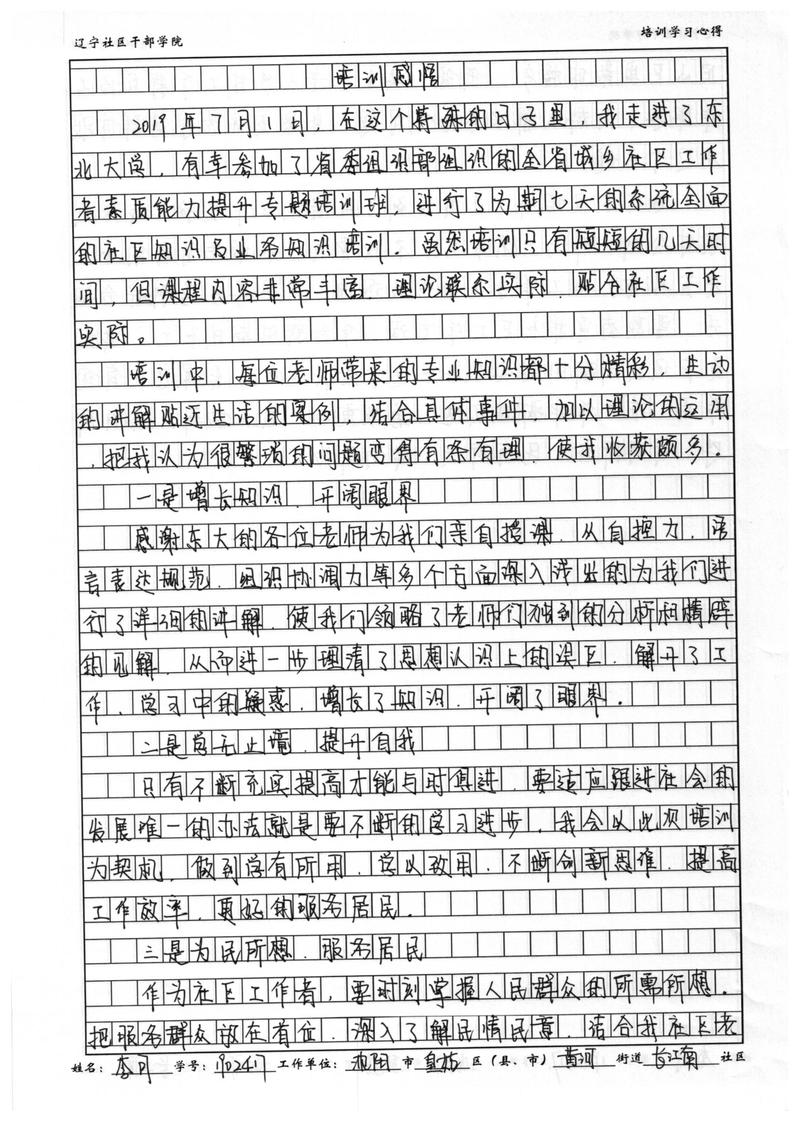 辽宁社区干部学院 培训学习心得
培训感悟
2019年7月1日，在这个特殊的日子里，我走进了东
北大学，有幸参加了省委组织部组织的全省城乡社区工作
者素质能力提升专题培训班，进行了为期七天的系统全面
的社区知识及业务知识培训。虽然培训只有短短的几天时
间，但课程内容非常丰富，理论联系实际，贴合社区工作
实际。
培训中，每位老师带来的专业知识都十分精彩，生动
的讲解贴近生活的案例，结合具体事件，加以理论的应用
，把我认为很繁琐的问题变得有条有理，使我收获颇多。
一是增长知识，开阔眼界
感谢东大的各位老师为我们亲自授课，从自控力，语
言表达规范，组织协调力等多个方面深入浅出的为我们进
行了详细的讲解，使我们领略了老师们独到的分析和精辟
的见解，从而进一步理清了思想认识上的误区，解开了工
作、学习中的疑惑，增长了知识，开阔了眼界。
二是学无止境，提升自我
只有不断充实提高才能与时俱进，要适应跟进社会的
发展唯一的办法就是要不断的学习进步，我会以此次培训
为契机，做到学有所用，学以致用，不断创新思维，提高
工作效率，更好的服务居民。
三是为民所想，服务居民
作为社区工作者，要时刻掌握人民群众的所需所想，
把服务群众放在首位，深入了解民情民意，结合我社区老
姓名：李可 学号：190241 工作单位：沈阳市皇姑区（县、市）黄河街道长江南社区